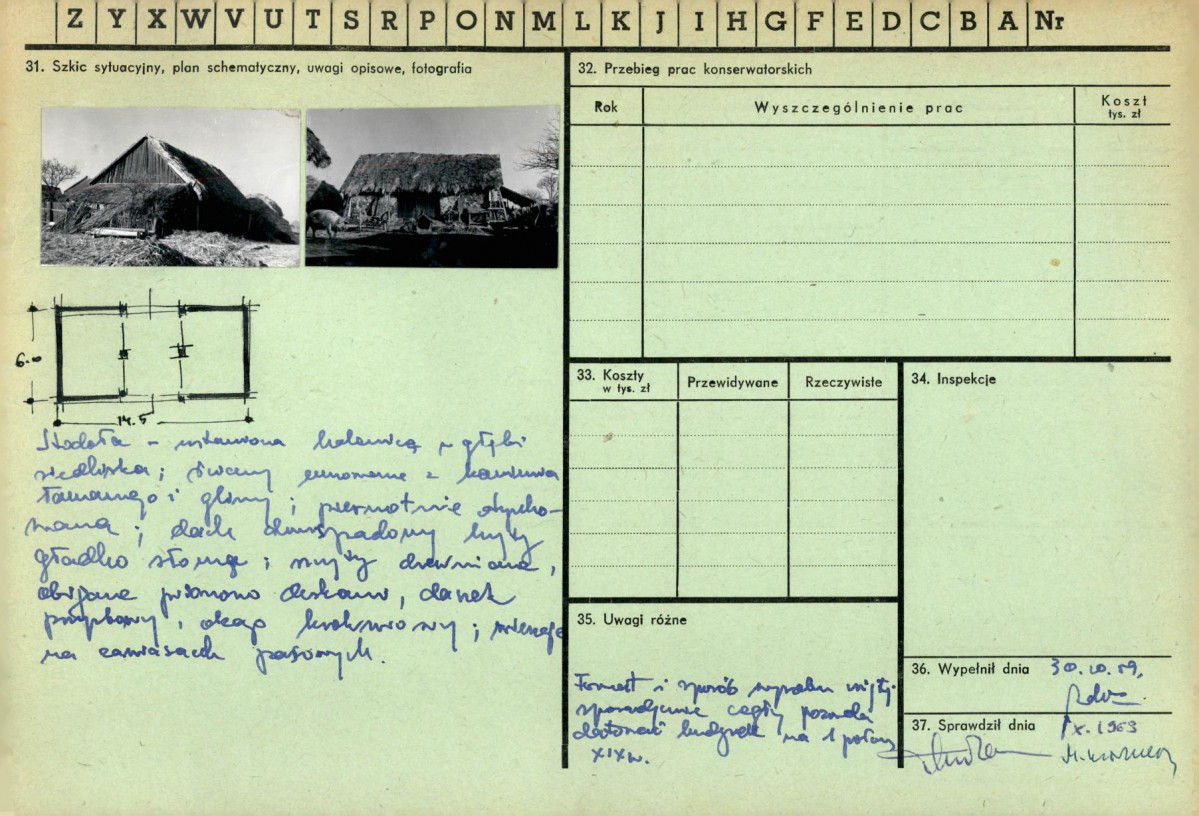 Z Y X W V U T S R P O N M L K J I H G F E D C B A Nr
31. Szkic sytuacyjny, plan schematyczny, uwagi opisowe, fotografia
6.0
14.5
Stodoła – ustawiona kalenicą w głębi
siedliska; ściany murowane z kamienia
łamanego i gliny; pierwotnie otynko-
wana; dach dwuspadowy kryty
gładko słomą; szczyty drewniane,
obijane pionowo deskami, daszek
przyzbowy, okap krokwiowy; wierzeje
na zawiasach pasowych.
32. Przebieg prac konserwatorskich
Rok
Wyszczególnienie prac
Koszt
tys. zł
33. Koszty
w tys. zł
Przewidywane
Rzeczywiste
34. Inspekcje
35. Uwagi różne
Format i sposób wyrobu użytej
sporadycznie cegły pozwala
datować budynek na 1 połowę
XIX w.
36. Wypełnił dnia 30.10.59,
37. Sprawdził dnia X.1963